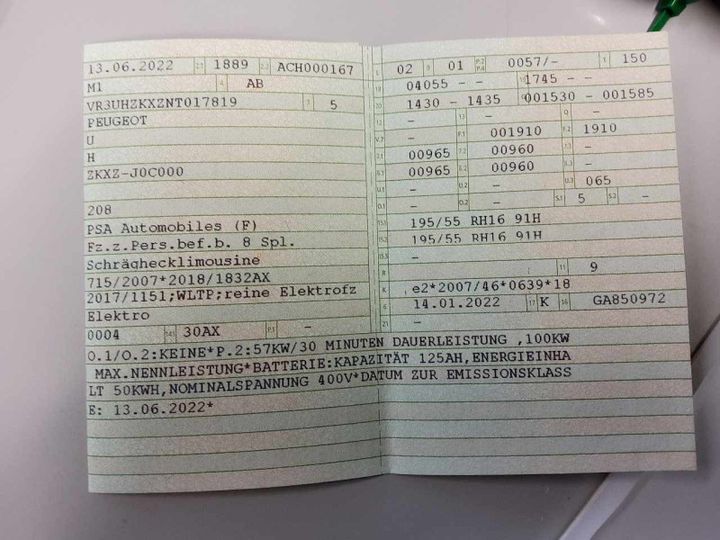 13.06.2022 2.1 1889 2.2 ACH000167
M1 4 AB
VR3UHZKXZNT017819 3 5
PEUGEOT
U
H
ZKXZ-J0C000
208
PSA Automobiles (F)
Fz.z.Pers.bef.b. 8 Spl.
Schräghecklimousine
715/2007*2018/1832AX
2017/1151;WLTP;reine Elektrofz
Elektro
0004 14.1 30AX P.1 –
L 02 9 01 P.2 P.4 0057/- T 150
18 04055 – – 1745 – –
20 1430 – 1435 001530 – 001585
12 – 13 – Q –
V.7 – F.1 001910 F.2 1910
7.1 00965 7.2 00960 7.3 –
8.1 00965 8.2 00960 8.3 –
U.1 – U.2 – U.3 065
O.1 – O.2 – S.1 5 S.2 –
15.1 195/55 RH16 91H
15.2 195/55 RH16 91H
15.3 –
R – 11 9
K e2*2007/46*0639*18
6 14.01.2022 17 K 16 GA850972
21 –
O.1/O.2:KEINE*P.2:57KW/30 MINUTEN DAUERLEISTUNG ,100KW
MAX.NENNLEISTUNG*BATTERIE:KAPAZITÄT 125AH,ENERGIEINHA
LT 50KWH,NOMINALSPANNUNG 400V*DATUM ZUR EMISSIONSKLASS
E: 13.06.2022*